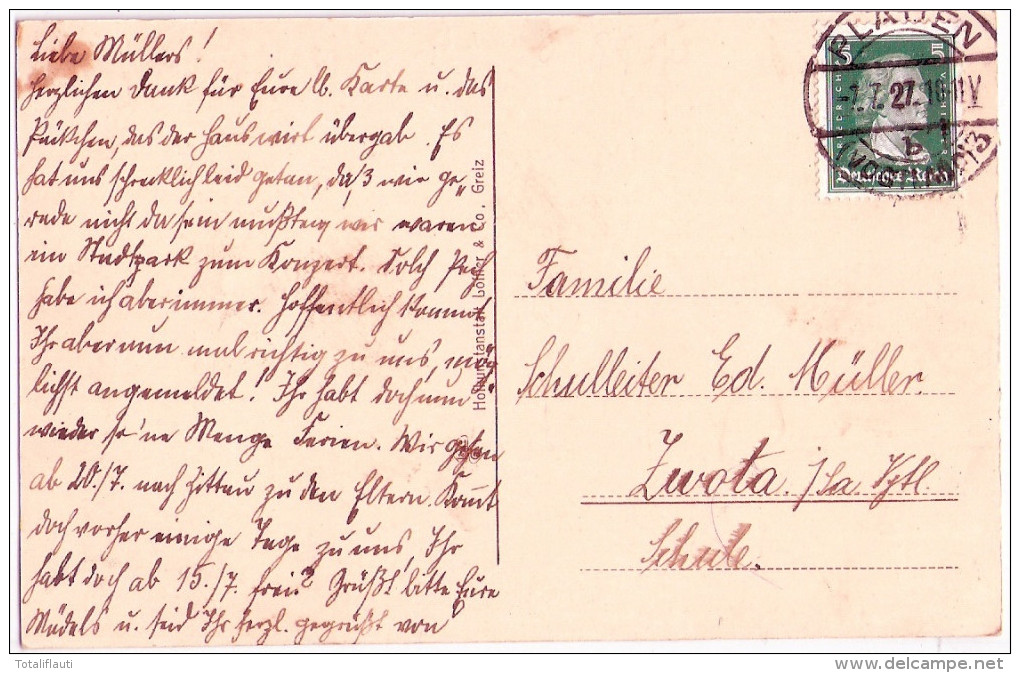 Liebe Müllers!
Herzlichen Dank für Eure lb. Karte u. das
Päckchen, das der Hauswirt übergab. Es
hat uns schrecklich leid getan, daß wir ge-
rade nicht da sein mußten, wir waren
im Stadtpark zum Konzert. Solch Pech
habe ich aber immer. Hoffentlich kommt
Ihr aber nun mal richtig zu uns, mög-
lichst angemeldet! Ihr habt doch nun
wieder so 'ne Menge Ferien. Wir gehen
ab 20./7. nach Zittau zu den Eltern. Kommt
doch vorher einige Tage zu uns, Ihr
habt doch ab 15./7. frei? Grüßt bitte Eure
Mädels u. seid Ihr herzl. gegrüßt von
Löffler & Co., Greiz
PLAUEN
27. 10-11V
b
(VOGTLAND) 3
5 5
FRIEDRICH
Deutsches Reich
Familie
Schulleiter Ed. Müller.
Zwota. i/Sa Vgtl.
Schule.
Totaliflauti
www.delcampe.net